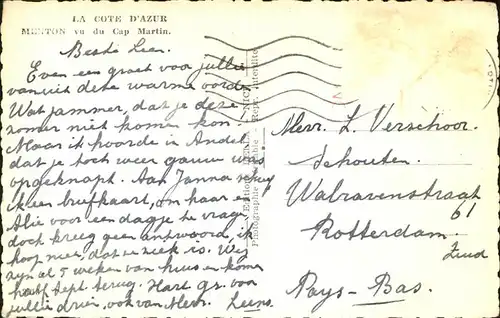 LA COTE D'AZUR
MENTON vu du Cap Martin.
Beste Leen.
Even een groet voor jullie
vanuit deze warme oorden
Wat jammer, dat je deze
zomer niet komen kon.
Maar ik hoorde in Andel
dat je toch weer gauw was
opgeknapt. Aan Janna schreef
ik een briefkaart, om haar en
Alie voor een dagje te vragen
doch kreeg geen antwoord, ik
hoop niet, dat ze ziek is. Wij
zijn al 5 weken van huis en komen
half Sept. terug. Hart. gr. voor
jullie drie, ook van Mevr.
Mevr. L. Verschoor.
Schouten.
Walravenstraat
61
Rotterdam.
Zuid
Pays-Bas.